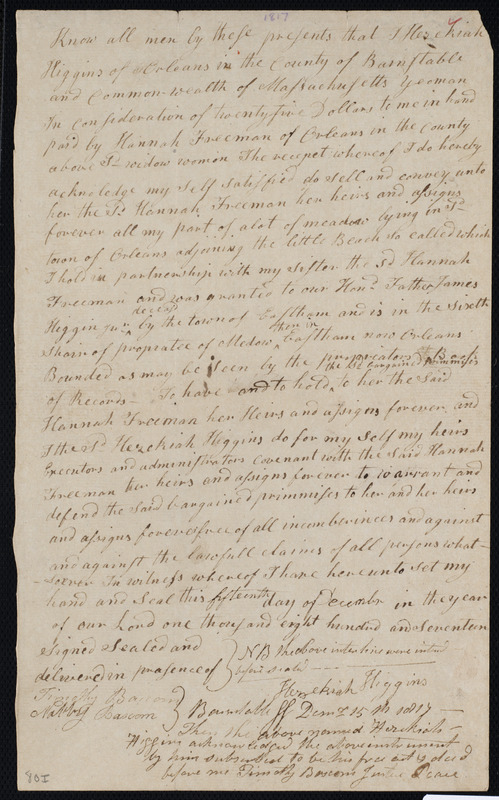 1817
Know all men by these presents that I Hezekiah
Higgins of Orleans in the County of Barnstable
and Common-wealth of Massachusetts yeoman
In consideration of twenty five Dollars to me in hand
paid by Hannah Freeman of Orleans in the County
above sd widow woman The receept whereof I do hereby
acknowledge my self satisfied do sell and convey unto
her the sd Hannah Freeman her heirs and assigns
forever all my part of a lot of meadow lying in sd
town of Orleans adjoining the little Beach so called which
I hold in partnership with my sister the sd Hannah
Freeman and was granted to our Hond Father James
Higgin junr decesd by the town of Eastham and is in the Sixth
Shair of propratee of Medow then in Eastham now Orleans
Bounded as may be seen by the propriators Book
of Records - To have and to hold the sd bargained primmises to her the said
Hannah Freeman her Heirs and assigns forever, and
I the sd Hezekiah Higgins do for my self my heirs
Executors and administrators covenant with the said Hannah
Freeman her heirs and assigns forever to warrant and
defend the said bargained primmises to her and her heirs
and assigns forever free of all incumberinces and against
and against the lawfull claims of all persons what-
-soever In witness whereof I have hereunto set my
hand and Seal this fifteenth day of Decembr in the year
of our Lord one thousand eight hundred and seventeen
Signed Sealed and
delivered in presence of
NB the above interlins were
before seald
Hezekiah Higgins
Timothy Bascom
Bascom
Barnstable ss Decmr 15th 1817 -
Then the above named Hezekiah
Higgins acknowledged the above instrument
by him subscribed to be his free act & deed
before me Timothy Bascom Justice Peace
80I